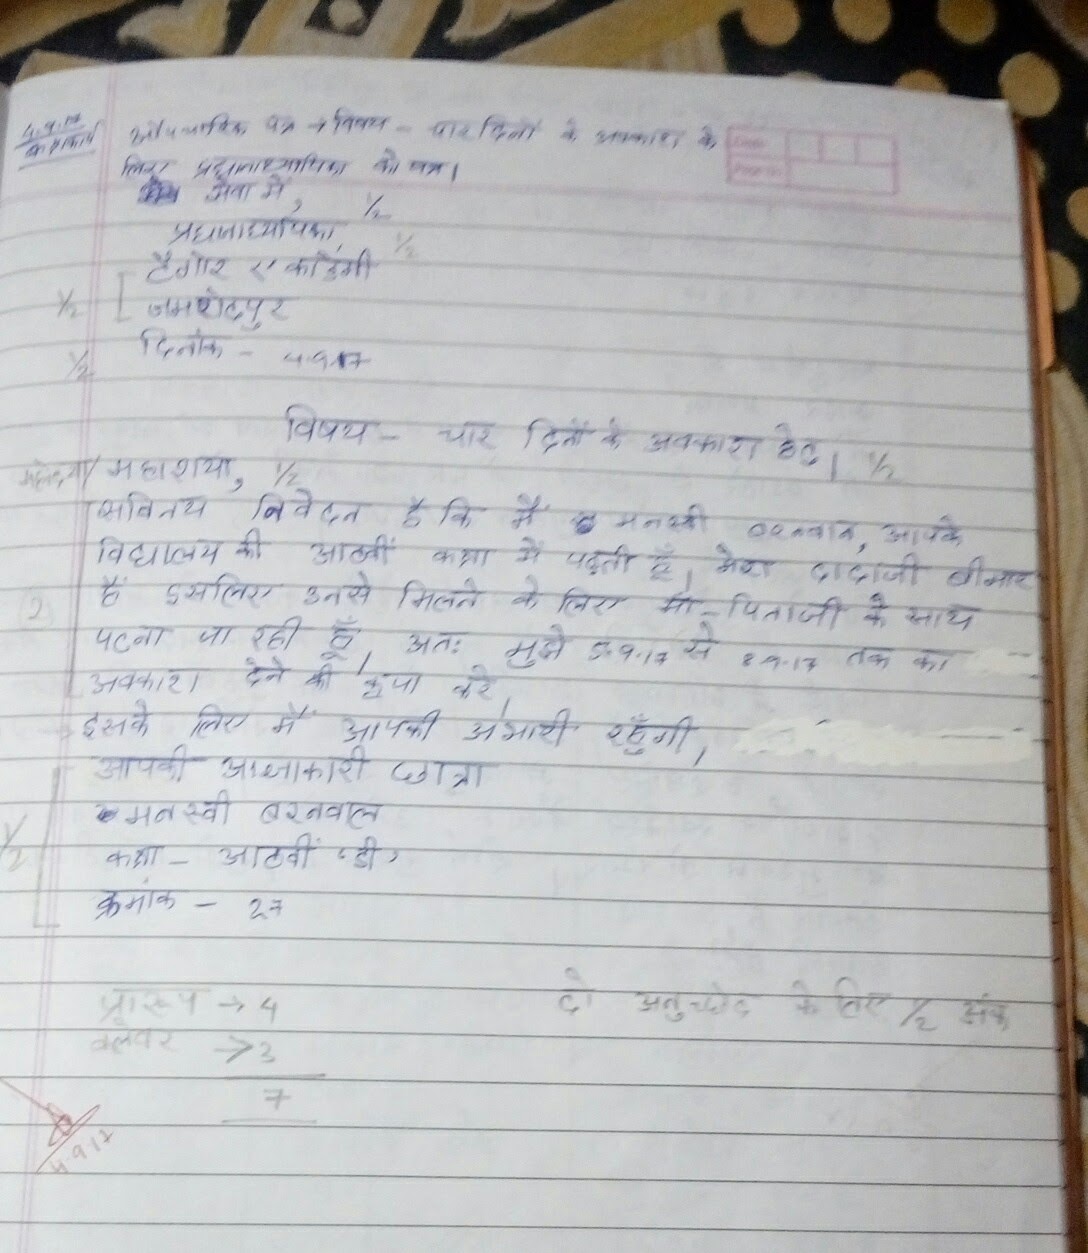 4.9.17
कक्षाकार्य
औपचारिक पत्र → विषय - चार दिनों के अवकाश के
लिए प्रधानाध्यापिका को पत्र।
सेवा में, 1/2
प्रधानाध्यापिका, 1/2
टैगोर एकाडेमी
1/2 जमशेदपुर
1/2 दिनांक - 4.9.17
विषय - चार दिनों के अवकाश हेतु। 1/2
महोदया/ महाशया, 1/2
सविनय निवेदन है कि मैं मनस्वी बरनवाल, आपके
विद्यालय की आठवीं कक्षा में पढ़ती हूँ। मेरा दादाजी बीमार
2 हैं इसलिए उनसे मिलने के लिए माँ-पिताजी के साथ
पटना जा रही हूँ। अतः मुझे 5.9.17 से 8.9.17 तक का
अवकाश देने की कृपा करें।
इसके लिए मैं आपकी अभारी रहूँगी।
आपकी आज्ञाकारी छात्रा
मनस्वी बरनवाल
1/2 कक्षा - आठवीं 'डी'
क्रमांक - 27
प्रारूप → 4 दो अनुच्छेद के लिए 1/2 अंक
कलेवर → 3
7
4.9.17